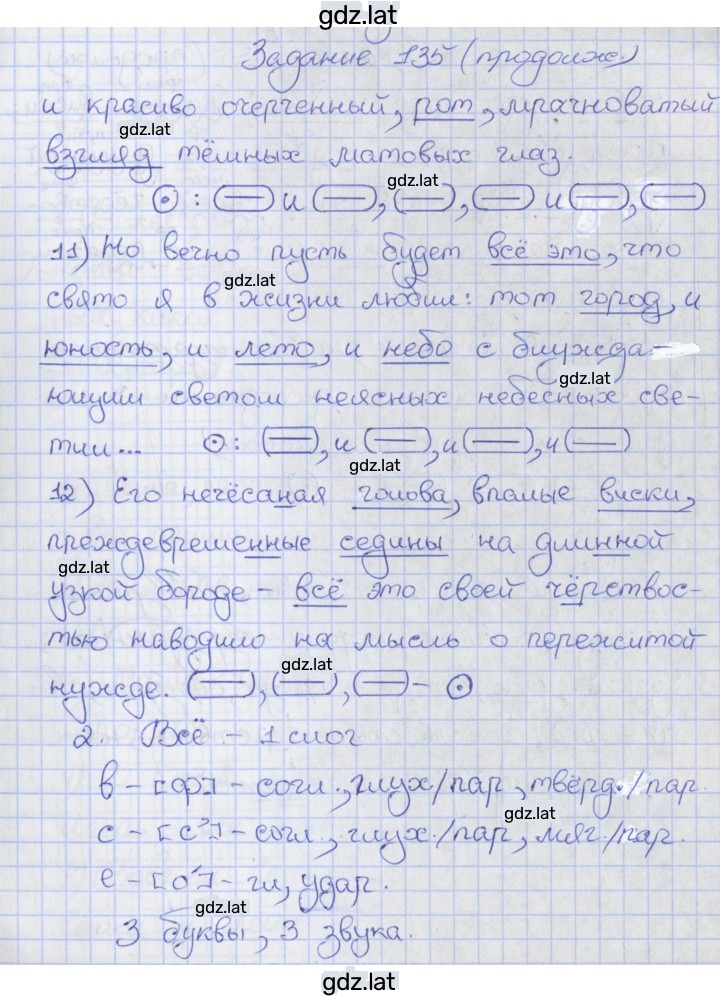 gdz.lat
Задание 135 (продолж.)
и красиво очерченный, рот, мрачноватый
gdz.lat
взгляд тёмных матовых глаз.
gdz.lat
⊙: и , , и ,
11) Но вечно пусть будет всё это, что
gdz.lat
свято я в жизни любил: тот город, и
юность, и лето, и небо с блужда-
gdz.lat
ющим светом неясных небесных све-
тил... ⊙: , и , и , и
gdz.lat
12) Его нечёсаная голова, впалые виски,
преждевременные седины на длинной
gdz.lat
узкой бороде - всё это своей чёрствос-
тью наводило на мысль о пережитой
gdz.lat
нужде. , , - ⊙
2. Всё - 1 слог
в - [ф] - согл., глух/пар, твёрд./пар.
gdz.lat
с - [с'] - согл., глух./пар, мяг./пар.
ё - [о́] - гл, удар.
gdz.lat
3 буквы, 3 звука.
gdz.lat